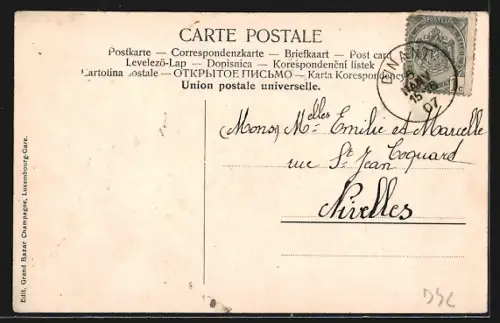 CARTE POSTALE
Postkarte — Correspondenzkarte — Briefkaart — Post card
Levelező-Lap — Dopisnica — Korespondenční listek
Cartolina postale — ОТКРЫТОЕ ПИСЬМО — Karta Korespondency
Union postale universelle.
DINANT
15
07
Mons, Melles Emilie et Marcelle
Coquard
rue St Jean
Nivelles
Edit. Grand Bazar Champagne, Luxembourg-Gare.